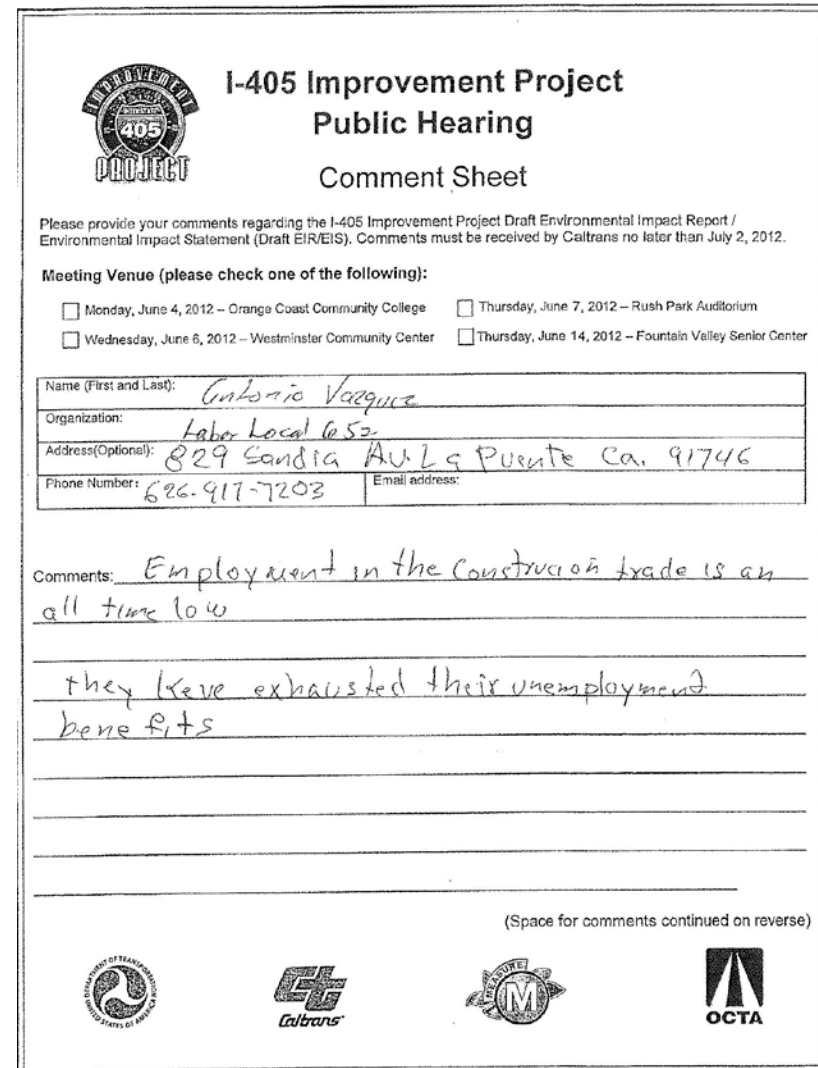 IMPROVEMENT
405
PROJECT
I-405 Improvement Project
Public Hearing
Comment Sheet
Please provide your comments regarding the I-405 Improvement Project Draft Environmental Impact Report /
Environmental Impact Statement (Draft EIR/EIS). Comments must be received by Caltrans no later than July 2, 2012.
Meeting Venue (please check one of the following):
Monday, June 4, 2012 – Orange Coast Community College Thursday, June 7, 2012 – Rush Park Auditorium
Wednesday, June 6, 2012 – Westminster Community Center Thursday, June 14, 2012 – Fountain Valley Senior Center
Name (First and Last): Antonio Vazquez
Organization: Labor Local 652
Address(Optional): 829 Sandia AV. La Puente Ca. 91746
Phone Number: 626-917-7203 Email address:
Comments: Employment in the Construcion trade is an
all time low
they have exhausted their unemployment
benefits
(Space for comments continued on reverse)
DEPARTMENT OF TRANSPORTATION
UNITED STATES OF AMERICA
Caltrans
MEASURE
M
OCTA